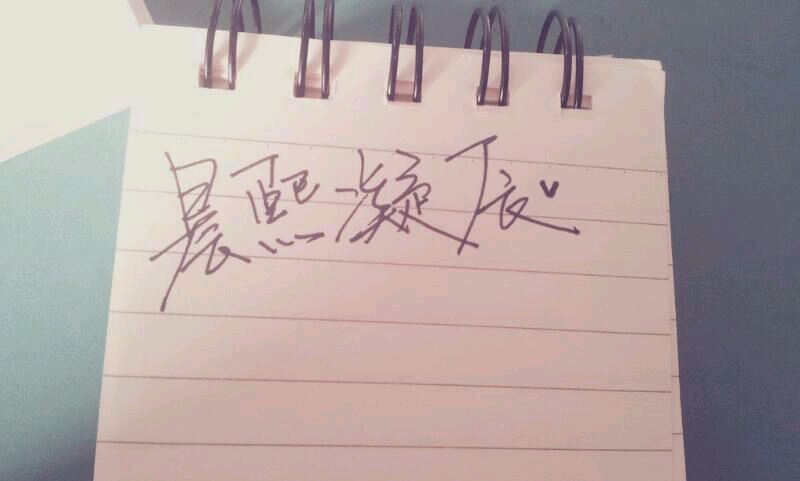 晨熙凝辰